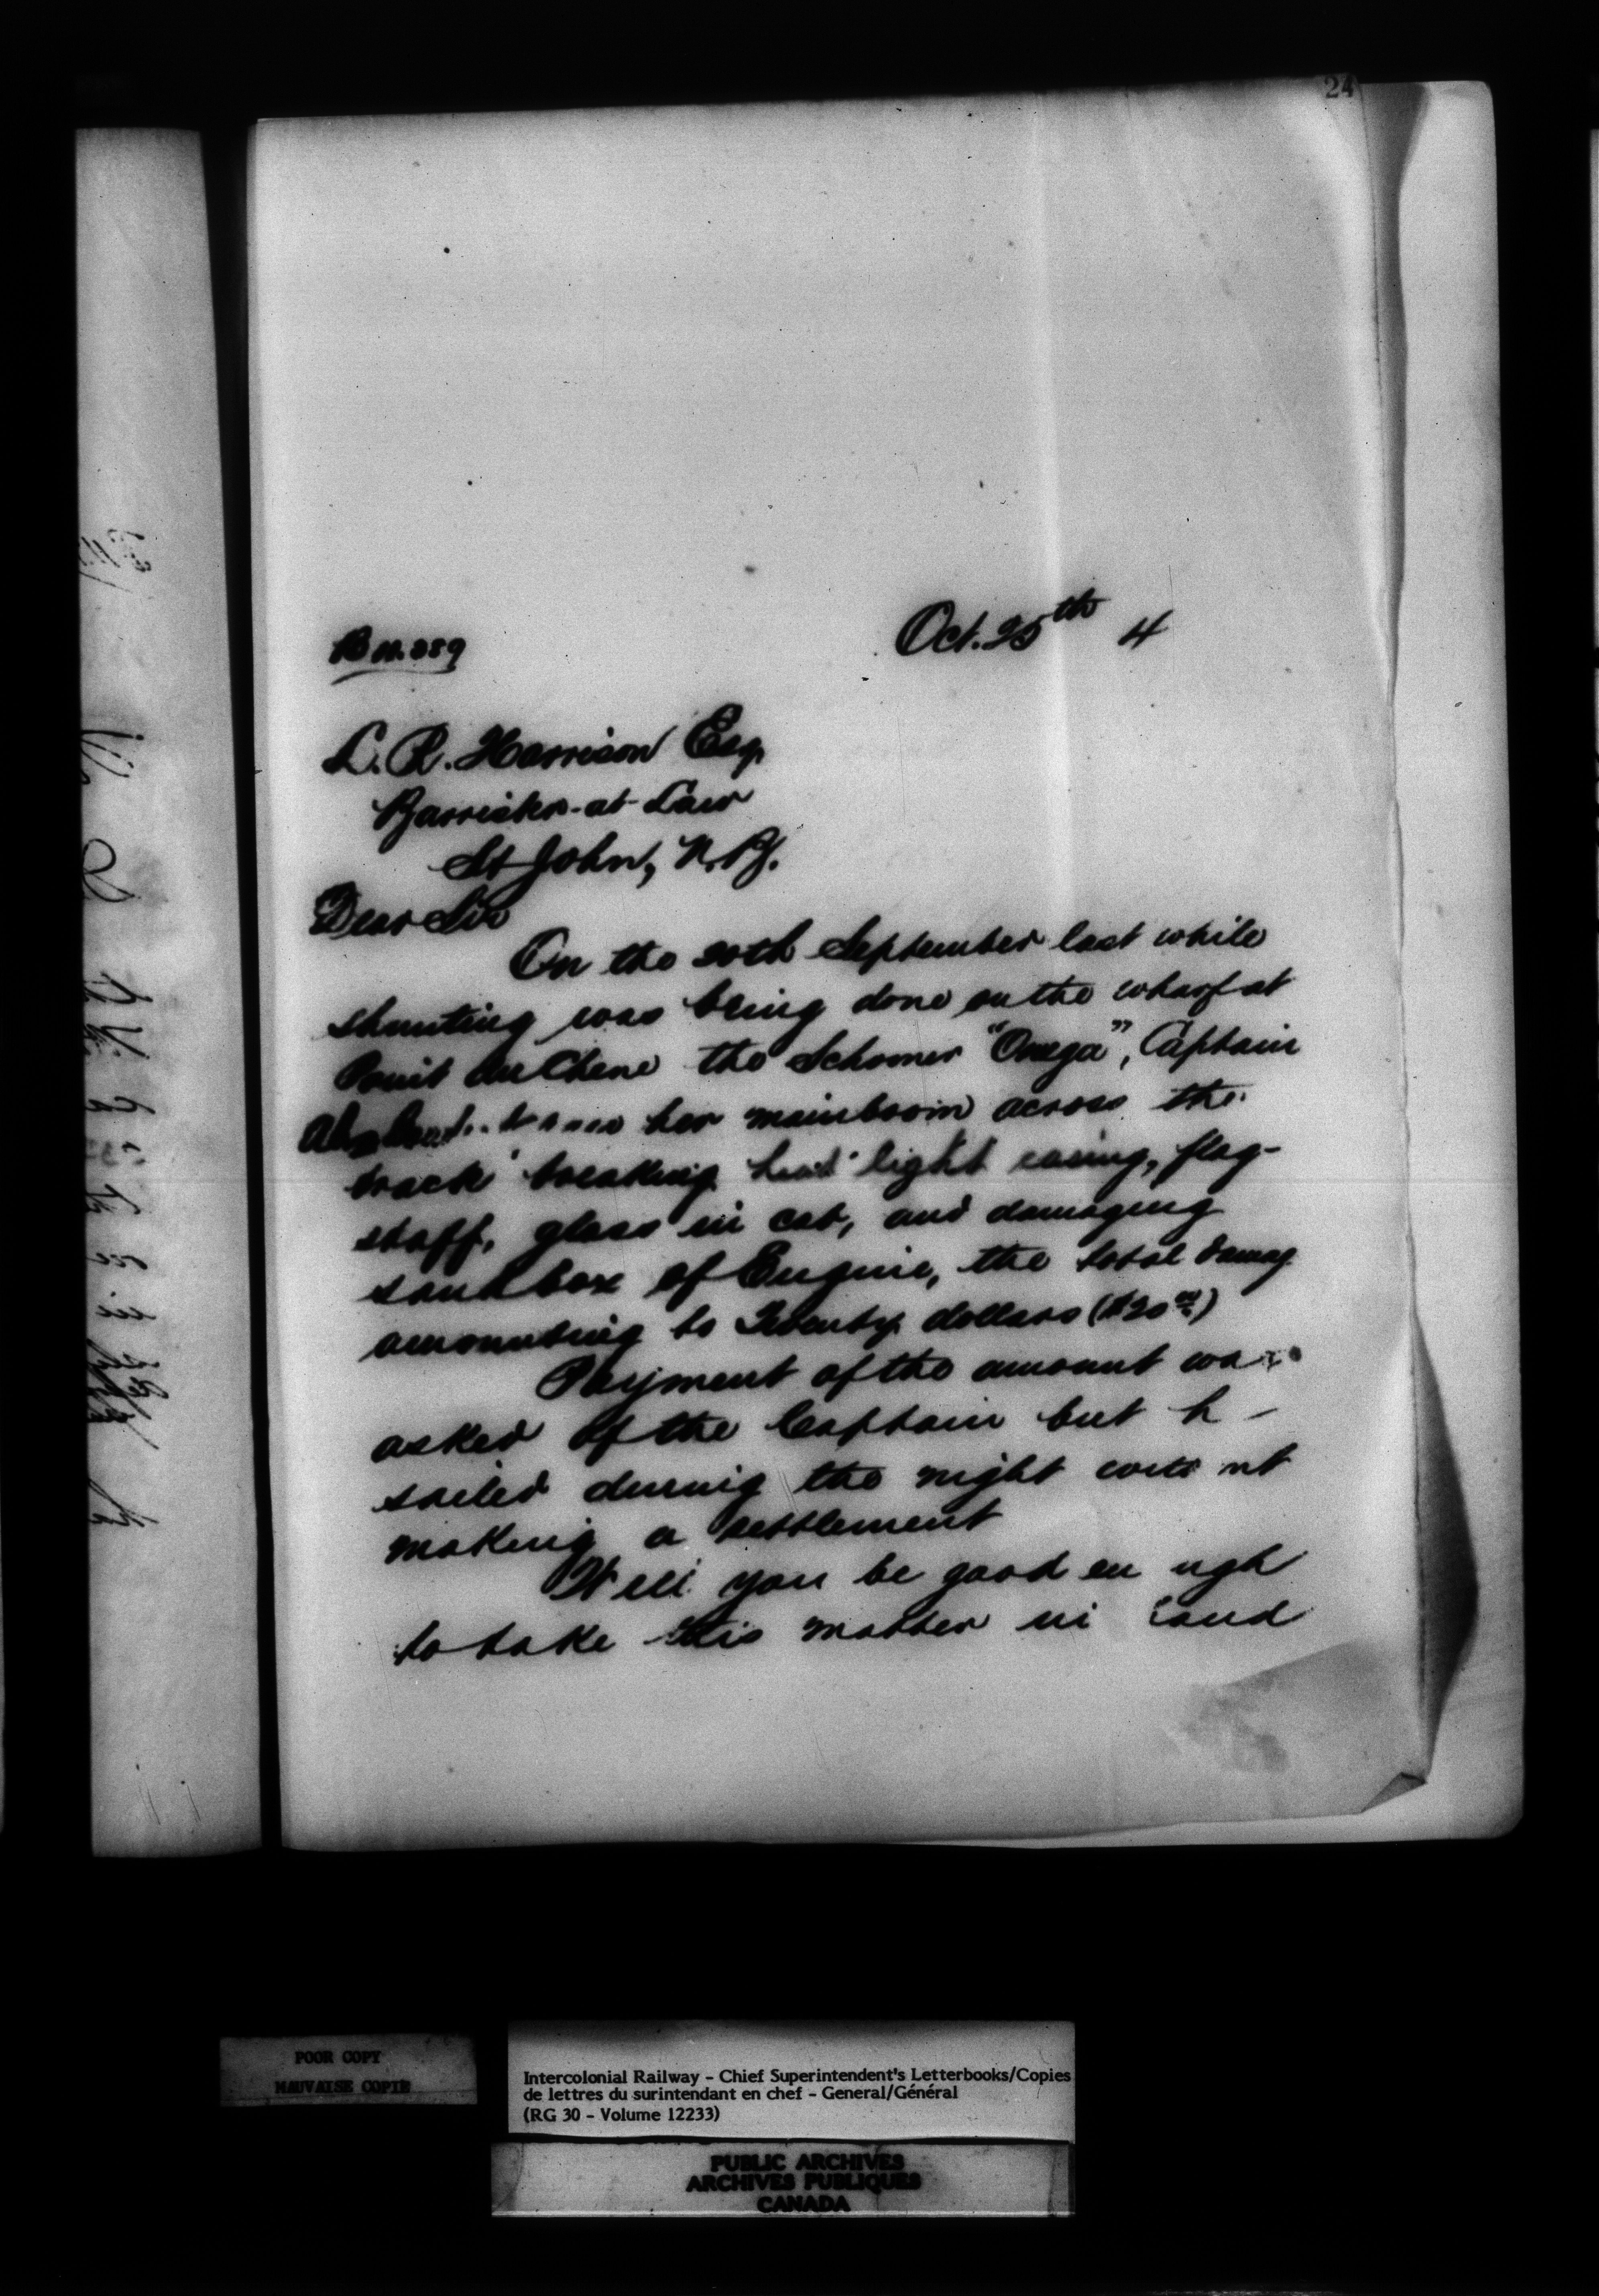 24
Oct. 25th 4
B N. 389
L. R. Harrison Esq
Barrister-at-Law
St John, N.B.
Dear Sir
On the 20th September last while
shunting was being done on the wharf at
Point du Chene the Schooner "Onega", Captain
her mainboom across the
track breaking head light casing, flag-
staff, glass in cab, and damaging
sand box of Engine, the total damag
amounting to Twenty dollars ($20.00)
Payment of the amount was
asked of the Captain but h
sailed during the night with nt
making a settlement
Will you be good en ugh
to take this matter in hand
POOR COPY
MAUVAISE COPIE
Intercolonial Railway - Chief Superintendent's Letterbooks/Copies
de lettres du surintendant en chef - General/Général
(RG 30 - Volume 12233)
PUBLIC ARCHIVES
ARCHIVES PUBLIQUES
CANADA